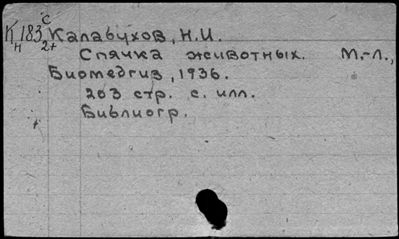 К 183 с Калабухов, Н.И.
н 2+
Спячка животных. М.-Л.,
Биомедгиз, 1936.
203 стр. с. илл.
Библиогр.